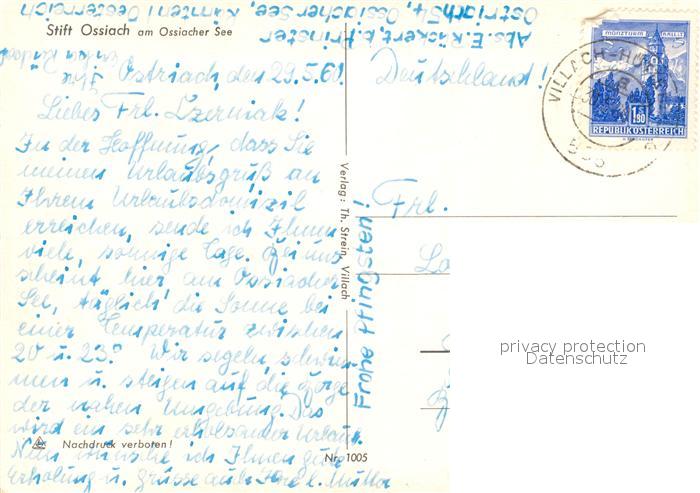 Stift Ossiach am Ossiacher See
Abs. E. Rückert b. Prinster
Ostriach 54, Ossiacher See, Kärnten / Oesterreich
Ostriach, den 29.5.60
Deutschland!
Liebes Frl. Czerniak!
In der Hoffnung, dass Sie
meinen Urlaubsgruß an
Ihrem Urlaubsdomizil
erreichen, sende ich Ihnen
viele, sonnige Tage. Bei uns
scheint hier am Ossiacher
See, täglich die Sonne bei
einer Temperatur zwischen
20 u. 23.° Wir segeln, schwim-
men u. steigen auf die Berge
der nahen Umgebung. Das
wird ein sehr erholsamer Urlaub.
Nun wünsche ich Ihnen gute
Erholung u. Grüsse auch Ihre l. Mutter
Ihr
Nachdruck verboten!
Nr. 1005
Verlag: Th. Strein, Villach
Frohe Pfingsten!
Frl.
MÜNZTURM HALL I.T.
1.90
REPUBLIK ÖSTERREICH
VILLACH
privacy protection
Datenschutz